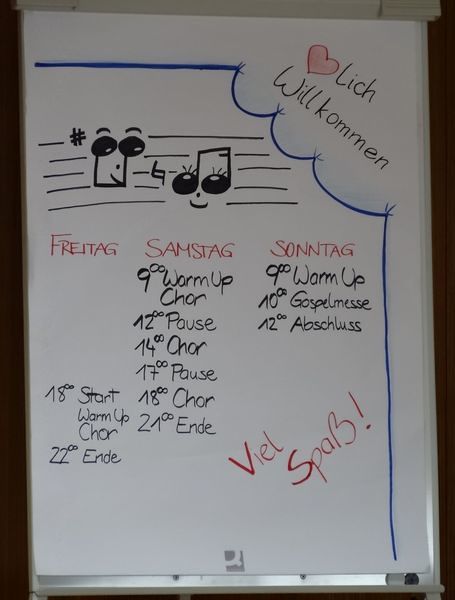 ♥lich
Willkommen
FREITAG
18⁰⁰ Start
Warm Up
Chor
22⁰⁰ Ende
SAMSTAG
9⁰⁰ Warm Up
Chor
12⁰⁰ Pause
14⁰⁰ Chor
17⁰⁰ Pause
18⁰⁰ Chor
21⁰⁰ Ende
SONNTAG
9⁰⁰ Warm Up
10⁰⁰ Gospelmesse
12⁰⁰ Abschluss
Viel
Spaß!